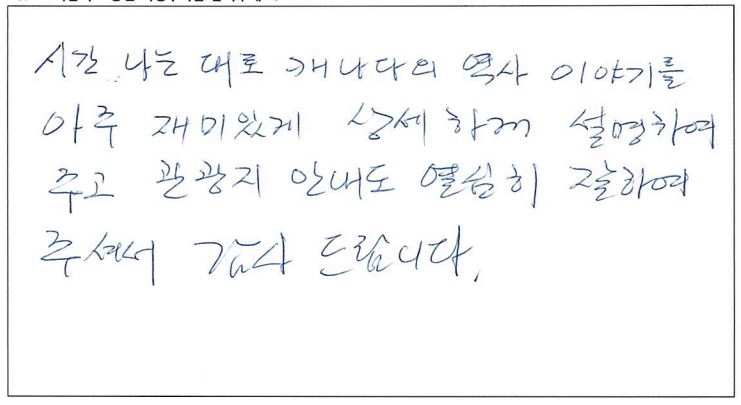 시간 나는 대로 캐나다의 역사 이야기를
아주 재미있게 상세하게 설명하여
주고 관광지 안내도 열심히 잘하여
주셔서 감사 드립니다.